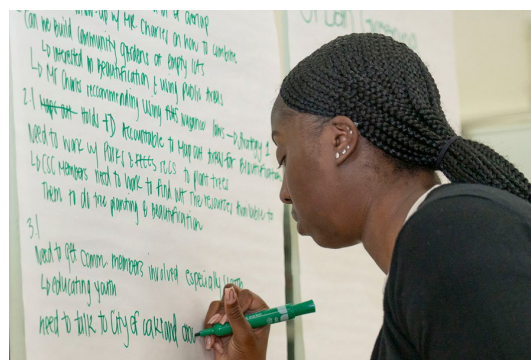 w/ Mr Charles on how to combine
Can we build community gardens on empty lots
↳ interested in Beautification & using public areas
↳ Mr Charles reccommending using
2.1 Holds TD Accountable to Map out areas for Beautification
Need to work w/ Parks & to plant trees
↳ CSC Members need to work to find out the resources available to
Them to do the planting & beautification
3.1
Need to get comm. members involved especially youth
↳ educating youth
need to talk to City of oakland